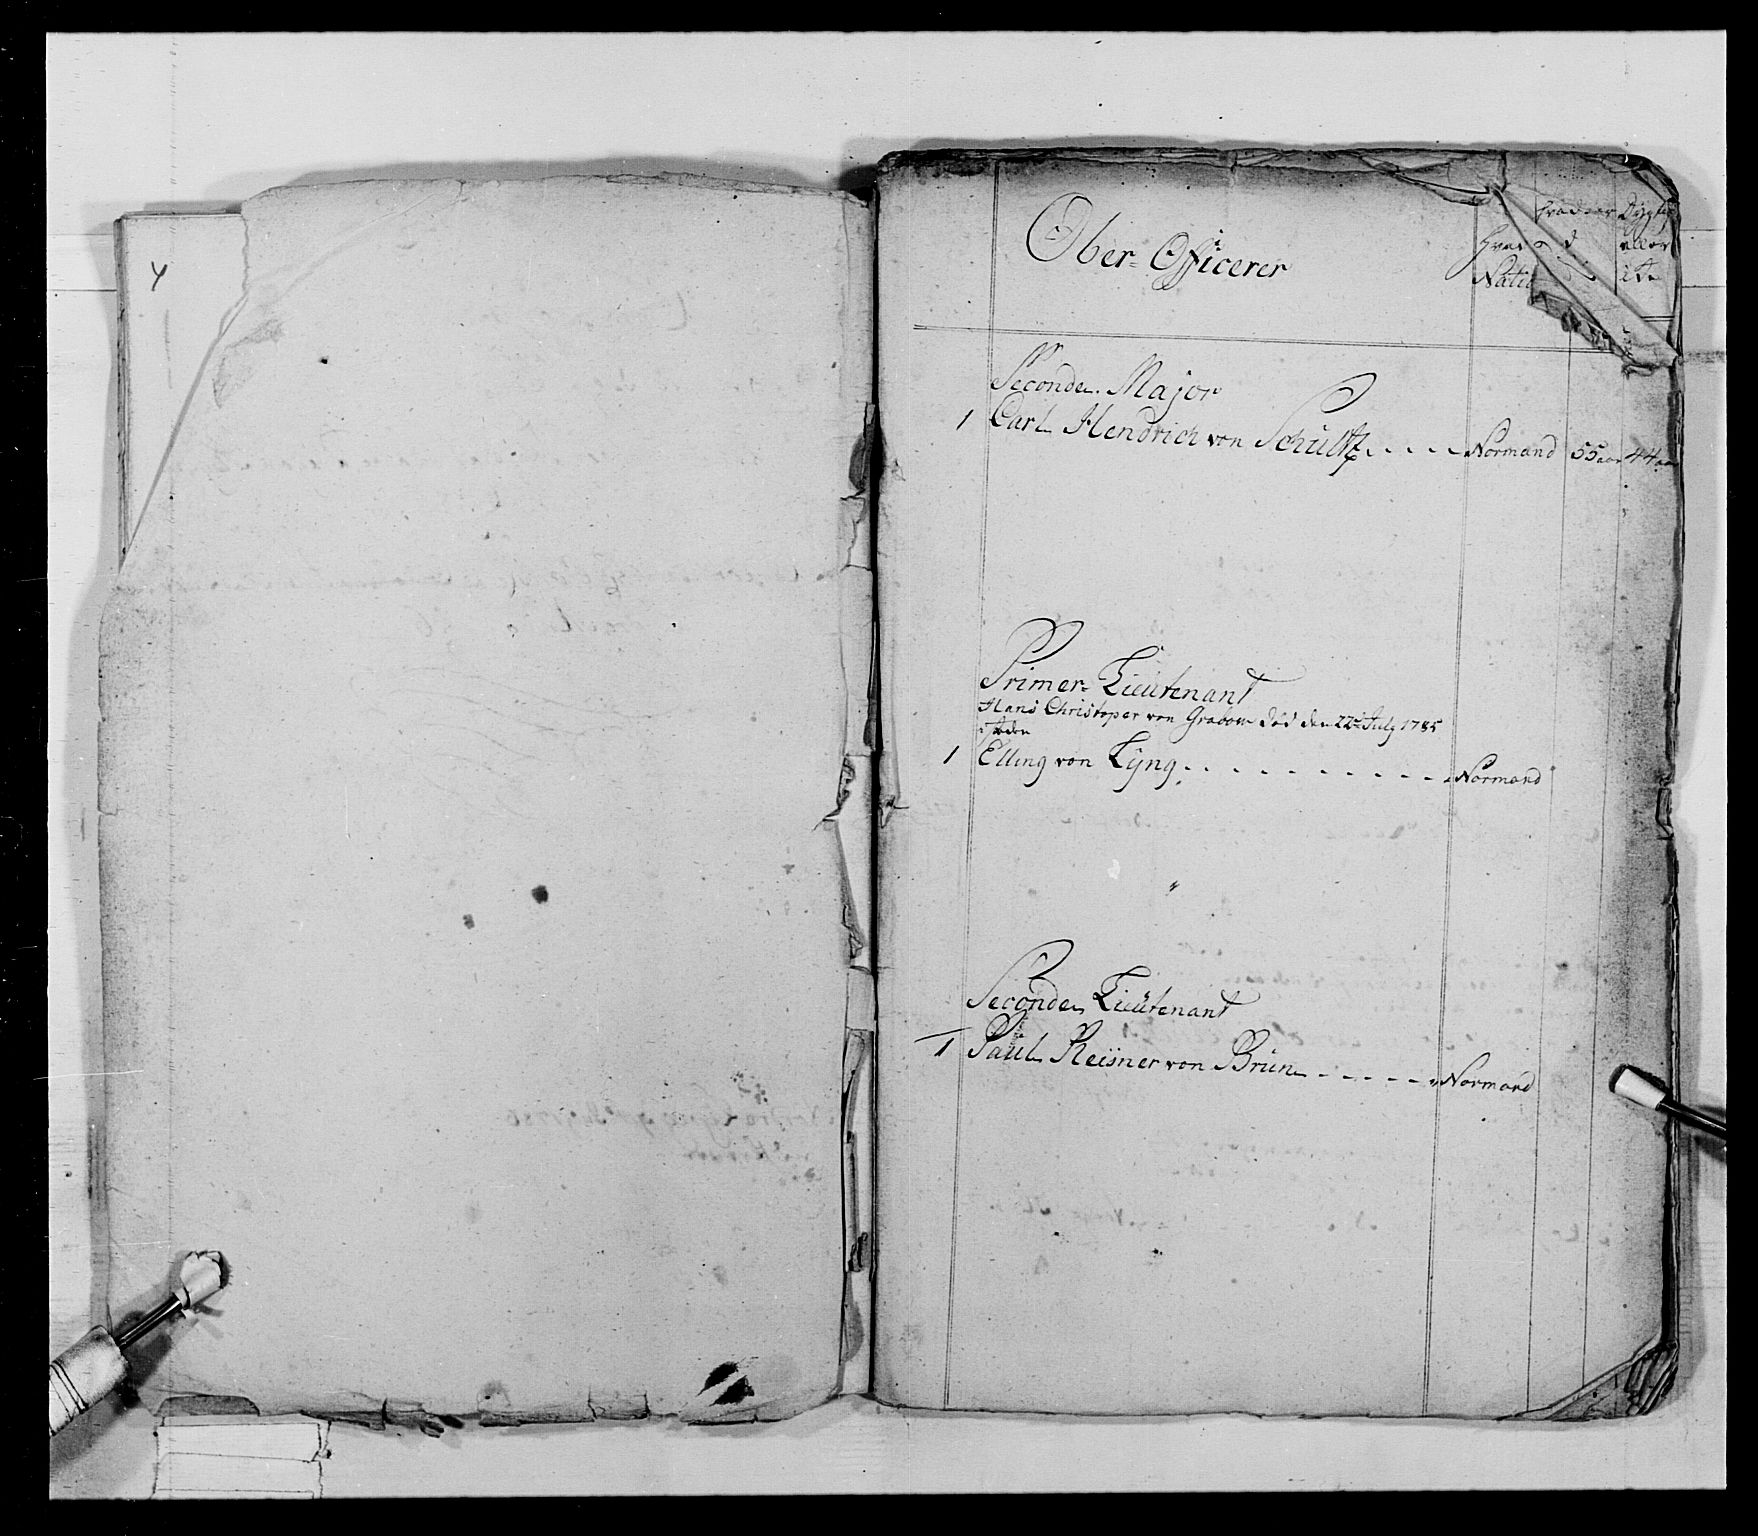 4
Ober- Officerer
Hvad
Natio
Dygtig
eller
Seconde- Major
1 Carl Hendrich von Schultz . . . . . Normand 55 aar 44 aar
Primer- Lieutenant
Hans Christoper von Grabow død den 22de July 1785
1 Elling von Lyng . . . . . . . . . . . Normand
Seconde Lieutenant
1 Paul Reisner von Brun . . . . . . Normand